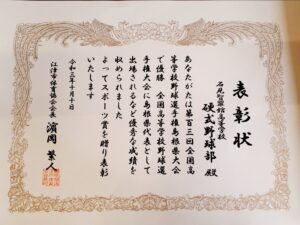 表彰状
石見智翠館高等学校
硬式野球部 殿
あなたがたは第百三回全国高
等学校野球選手権島根県大会
で優勝 全国高等学校野球選
手権大会に島根県代表として
出場されるなど優秀な成績を
収められました
よってスポーツ賞を贈り表彰
いたします
令和三年十月十日
江津市体育協会会長 濵岡 繁人